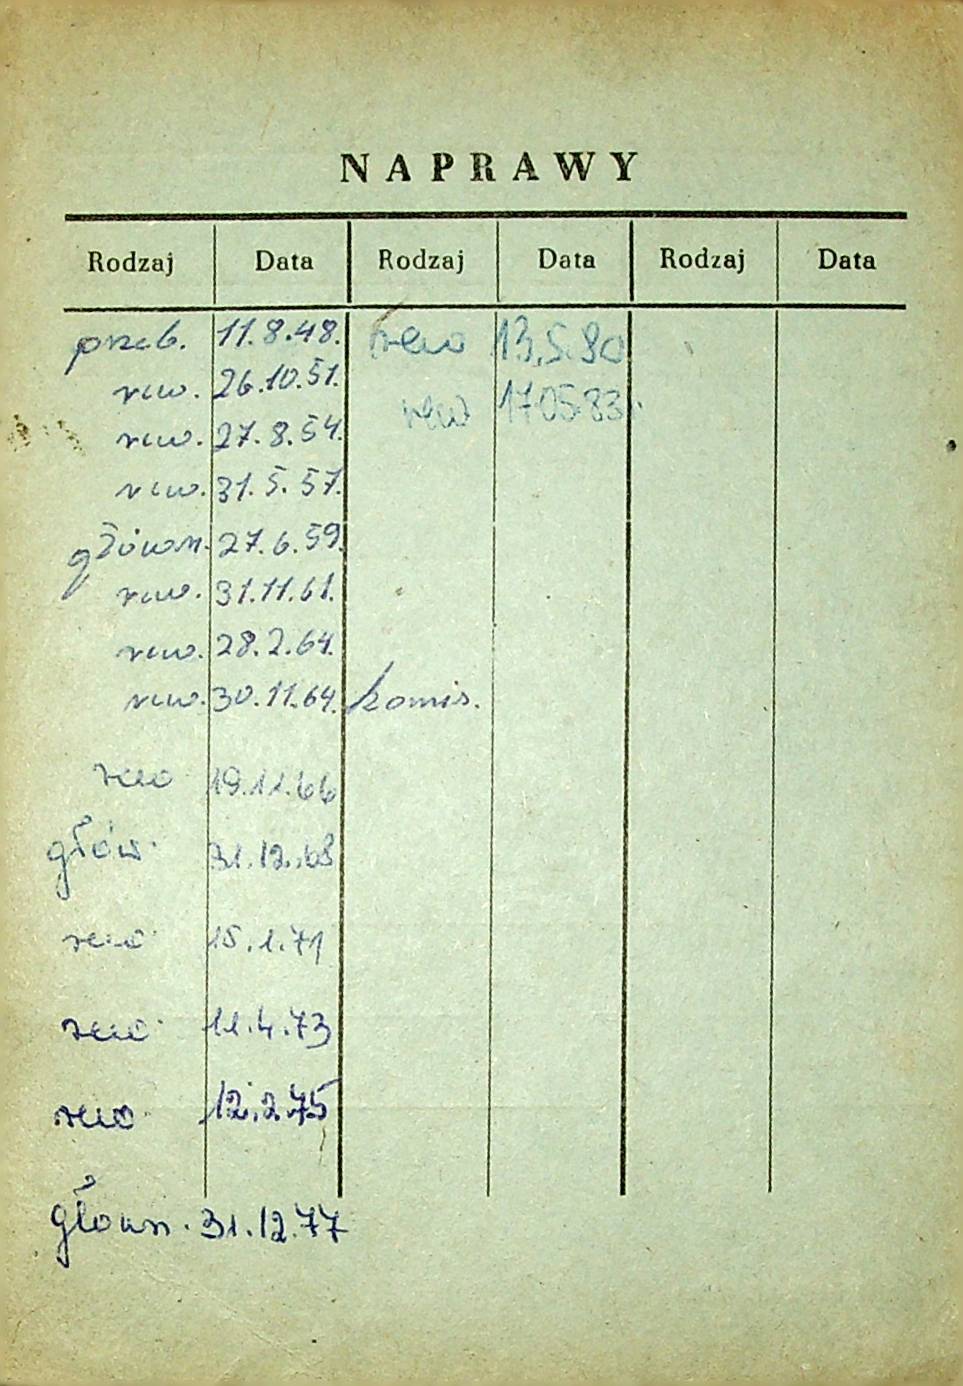 NAPRAWY
Rodzaj Data Rodzaj Data Rodzaj Data
przeb. 11.8.48. rew 13.5.80
rew. 26.10.51.
rew 17.05.83.
rew. 27.8.54.
rew. 31.5.57.
główn. 27.6.59.
rew. 31.11.61.
rew. 28.2.64.
rew. 30.11.64. komis.
rew 19.11.66
głów. 31.12.68
rew. 15.1.71
rew. 11.4.73
rew. 12.2.75
główn. 31.12.77